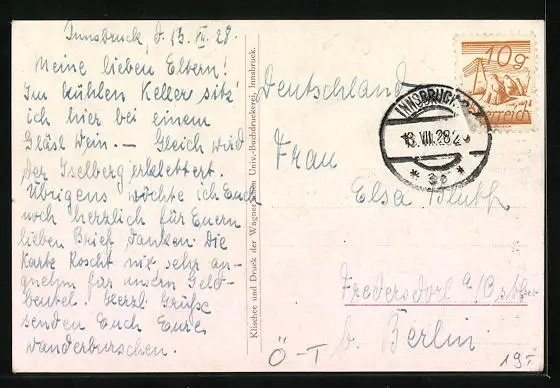 Innsbruck, d. 13. VII. 28.
Meine lieben Eltern!
Im kühlen Keller sitz
ich hier bei einem
Gläsl Wein. — Gleich wird
der Iselberg erklettert.
Übrigens möchte ich Euch
noch herzlich für Euern
lieben Brief danken. Die
Karte kommt mir sehr an-
gnehm für unsern Geld-
beutel. Herzl. Grüße
senden Euch Eure
Wanderburschen.
Klischee und Druck der Wagner'schen Univ.-Buchdruckerei, Innsbruck.
Deutschland
Frau
Elsa
Fredersdorf a/Ostbhn
b. Berlin
10g
INNSBRUCK 2
13.VII.28
* 3c *
Ö - T
19T